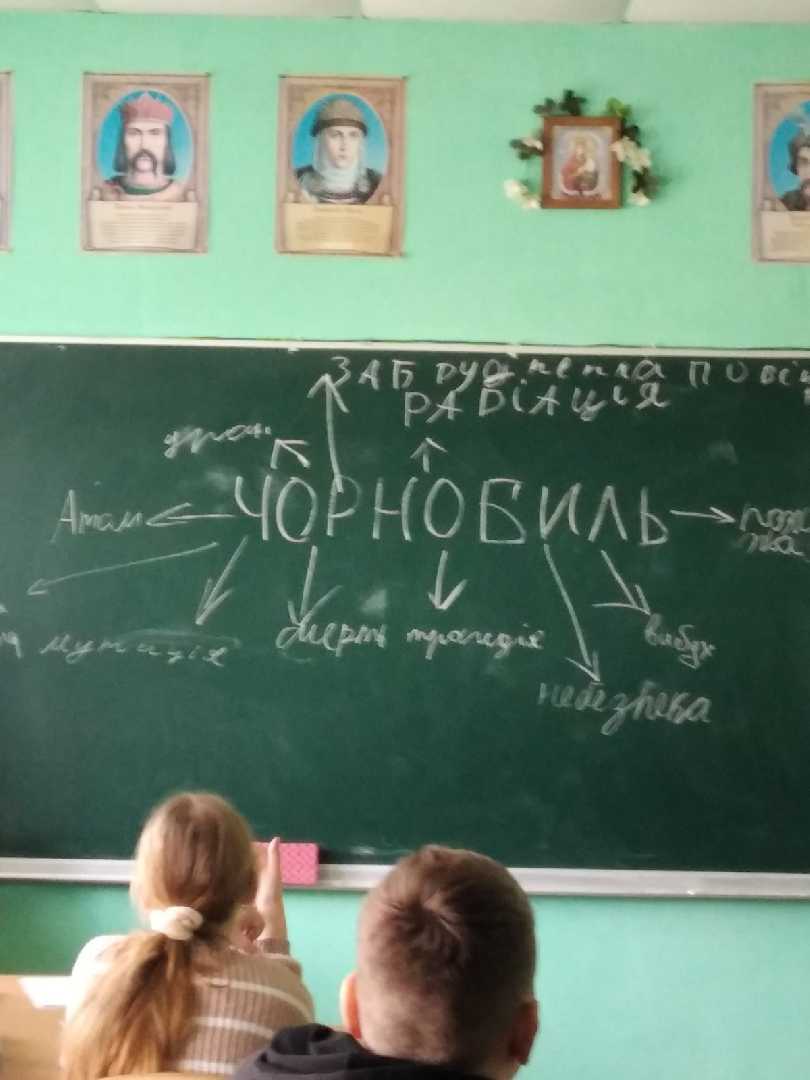 ЗАБРУДНЕННЯ ПОВІ
РАДІАЦІЯ
уран
Атом
ЧОРНОБИЛЬ
мутація
смерть
трагедія
вибух
небезпека